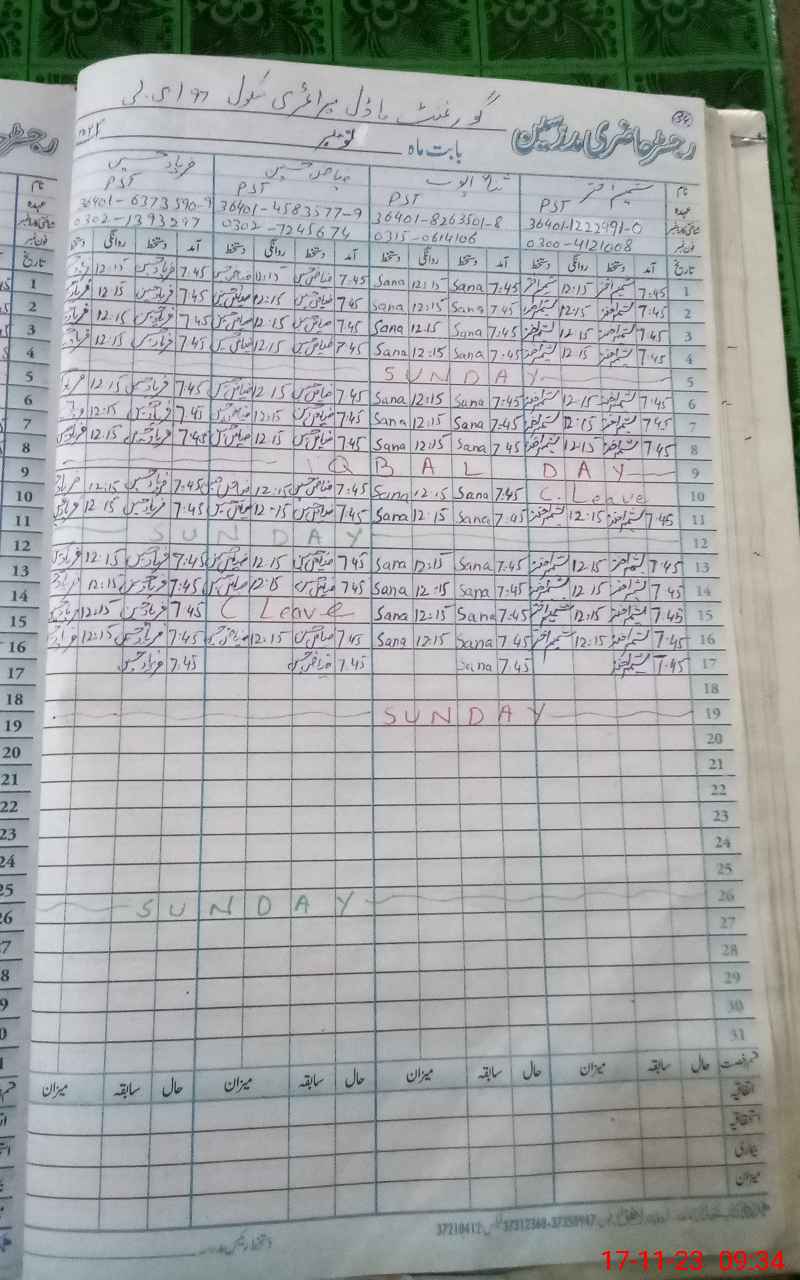 (34)
گورنمنٹ ماڈل پرائمری سکول
رجسٹر حاضری مدرسین بابت ماہ نومبر
نام شمیم اختر ثناء ایوب فیاض حسین فرہاد حسین
عہدہ PST PST PST PST
36401-1222491-0 36401-8263501-8 36401-4583577-9 36401-6373590-9
فون نمبر 0300-4121008 0315-0614106 0302-7245674 0302-1393297
تاریخ آمد دستخط روانگی دستخط آمد دستخط روانگی دستخط آمد دستخط روانگی دستخط آمد دستخط روانگی دستخط
1 7:45 شمیم اختر 12:15 شمیم اختر 7:45 Sana 12:15 Sana 7:45 فیاض حسین 12:15 فیاض حسین 7:45 فرہاد حسین 12:15
2 7:45 شمیم اختر 12:15 شمیم اختر 7:45 Sana 12:15 Sana 7:45 فیاض حسین 12:15 فیاض حسین 7:45 فرہاد حسین 12:15
3 7:45 شمیم اختر 12:15 شمیم اختر 7:45 Sana 12:15 Sana 7:45 فیاض حسین 12:15 فیاض حسین 7:45 فرہاد حسین 12:15
4 7:45 شمیم اختر 12:15 شمیم اختر 7:45 Sana 12:15 Sana 7:45 فیاض حسین 12:15 فیاض حسین 7:45 فرہاد حسین 12:15
5 SUNDAY
6 7:45 شمیم اختر 12:15 شمیم اختر 7:45 Sana 12:15 Sana 7:45 فیاض حسین 12:15 فیاض حسین 7:45 فرہاد حسین 12:15
7 7:45 شمیم اختر 12:15 شمیم اختر 7:45 Sana 12:15 Sana 7:45 فیاض حسین 12:15 فیاض حسین 7:45 فرہاد حسین 12:15
8 7:45 شمیم اختر 12:15 شمیم اختر 7:45 Sana 12:15 Sana 7:45 فیاض حسین 12:15 فیاض حسین 7:45 فرہاد حسین 12:15
9 IQBAL DAY
10 C.Leave 7:45 Sana 12:15 Sana 7:45 فیاض حسین 12:15 فیاض حسین 7:45 فرہاد حسین 12:15
11 7:45 شمیم اختر 12:15 شمیم اختر 7:45 Sana 12:15 Sana 7:45 فیاض حسین 12:15 فیاض حسین 7:45 فرہاد حسین 12:15
12 SUNDAY
13 7:45 شمیم اختر 12:15 شمیم اختر 7:45 Sana 12:15 Sana 7:45 فیاض حسین 12:15 فیاض حسین 7:45 فرہاد حسین 12:15
14 7:45 شمیم اختر 12:15 شمیم اختر 7:45 Sana 12:15 Sana 7:45 فیاض حسین 12:15 فیاض حسین 7:45 فرہاد حسین 12:15
15 7:45 شمیم اختر 12:15 شمیم اختر 7:45 Sana 12:15 Sana C Leave 7:45 فرہاد حسین 12:15
16 7:45 شمیم اختر 12:15 شمیم اختر 7:45 Sana 12:15 Sana 7:45 فیاض حسین 12:15 فیاض حسین 7:45 فرہاد حسین 12:15
17 7:45 شمیم اختر 7:45 Sana 7:45 فیاض حسین 7:45 فرہاد حسین
18
19 SUNDAY
20
21
22
23
24
25
26 SUNDAY
27
28
29
30
31
قسم رخصت حال سابقہ میزان حال سابقہ میزان حال سابقہ میزان حال سابقہ میزان
اتفاقیہ
استحقاقیہ
بیماری
میزان
37210412 37312368-37350947
17-11-23 09:34